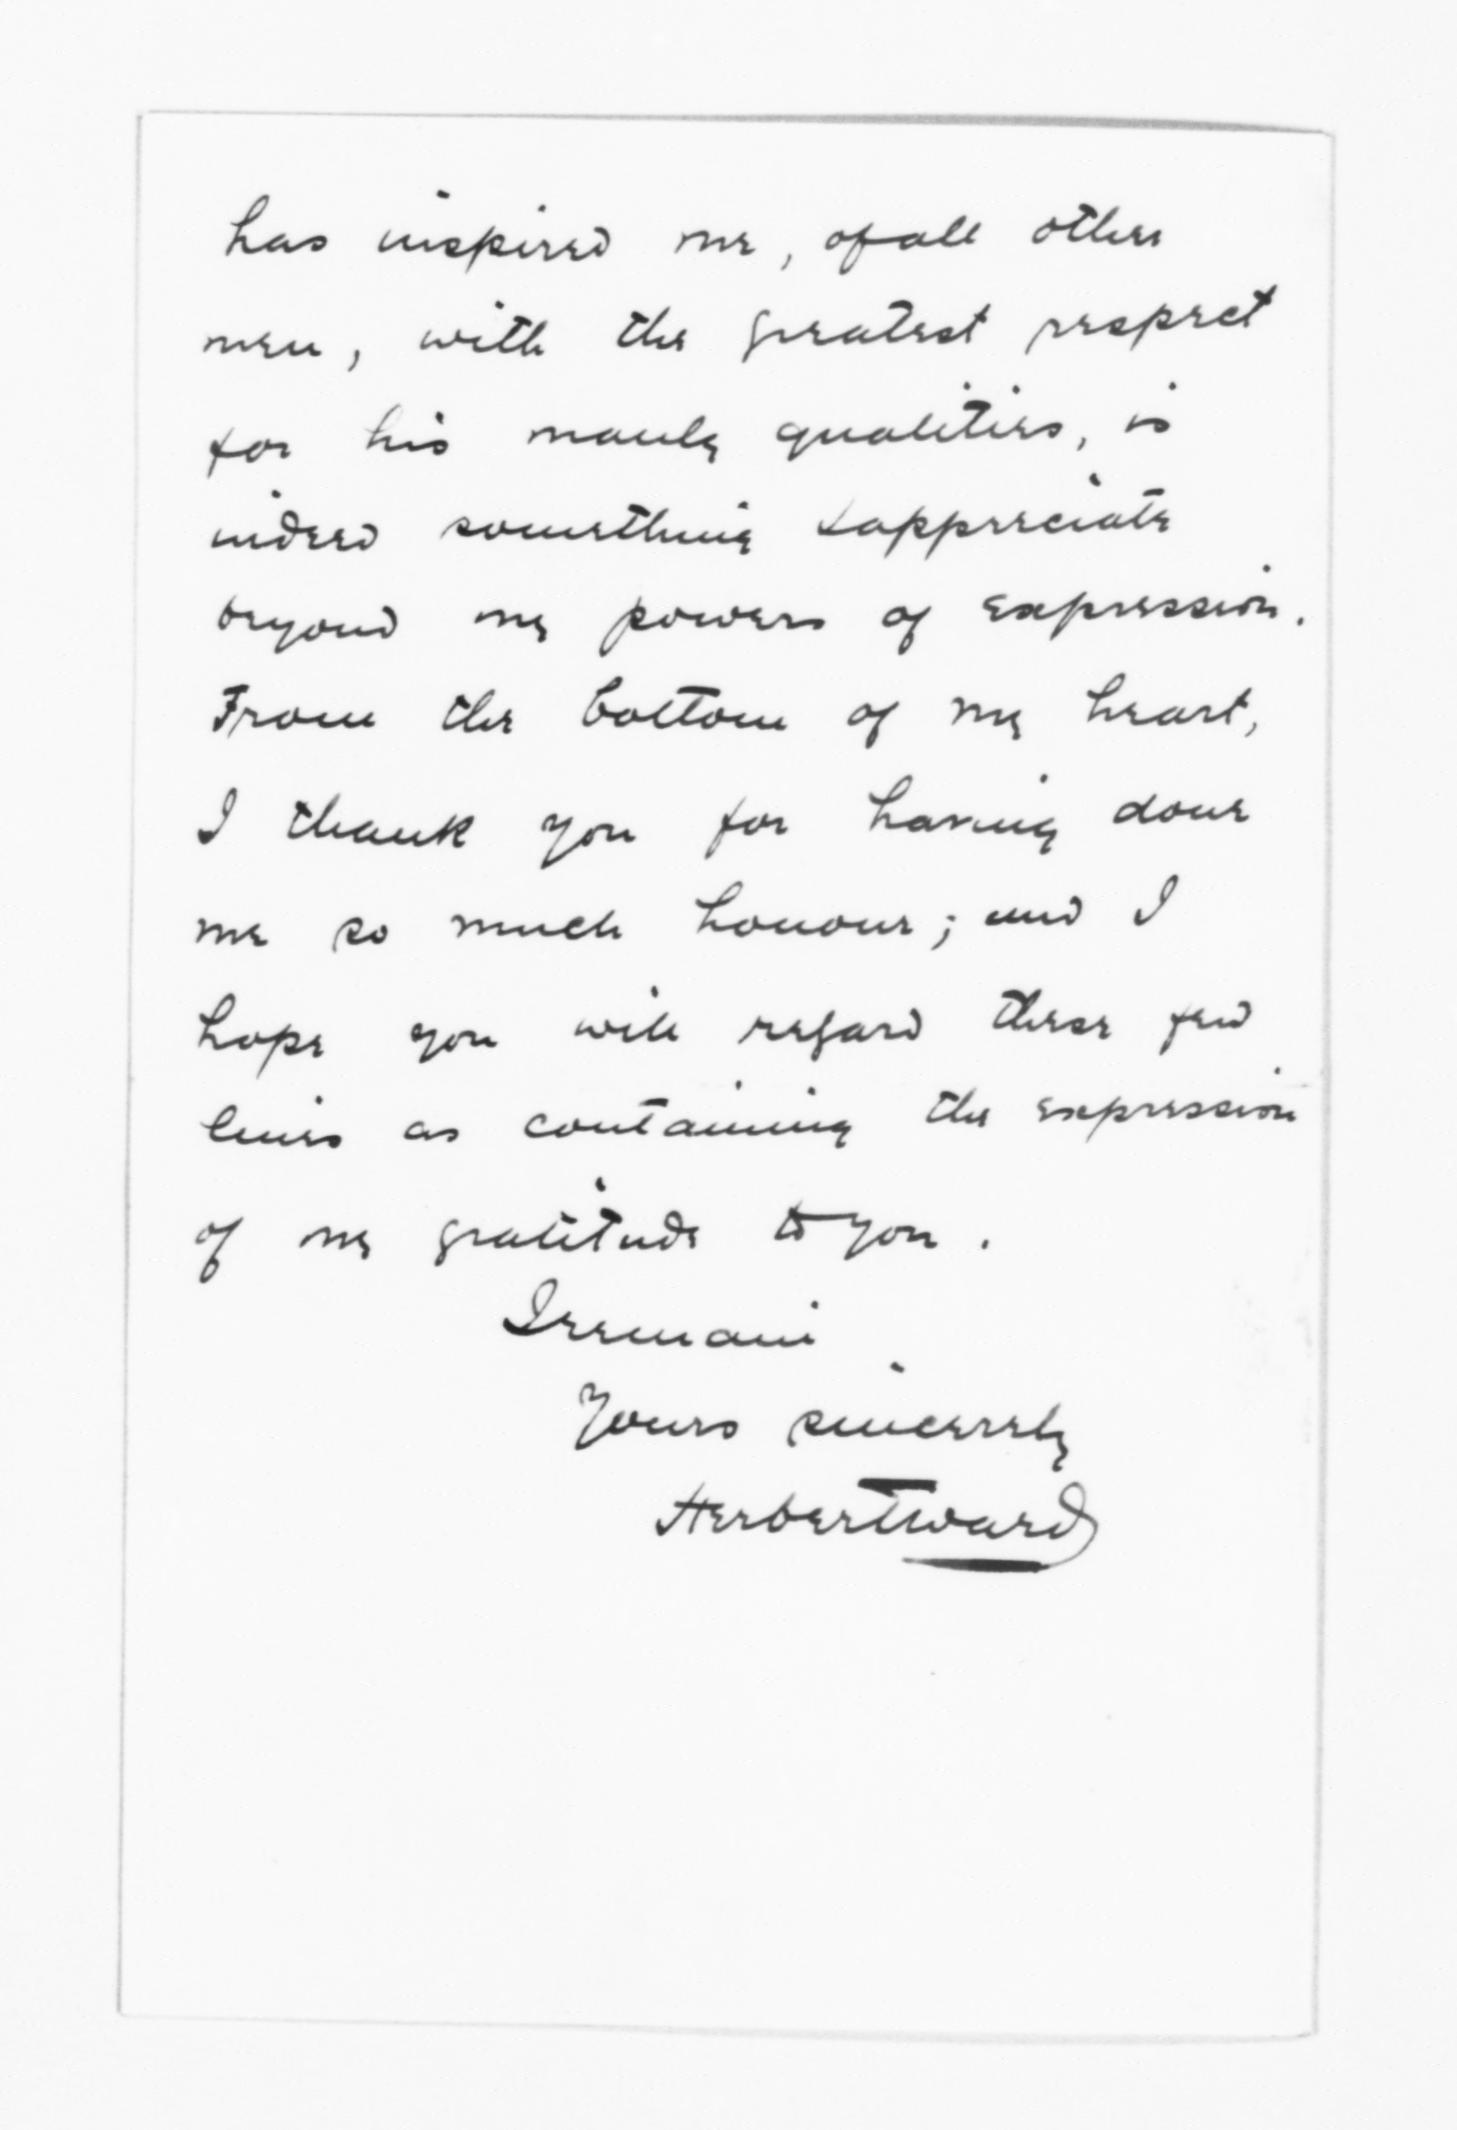 has inspired me, of all other
men, with the greatest respect
for his manly qualities, is
indeed something to appreciate
beyond my powers of expression.
From the bottom of my heart,
I thank you for having done
me so much honour; and I
hope you will regard these few
lines as containing the expression
of my gratitude to you.
I remain
Yours sincerely
Herbert Ward